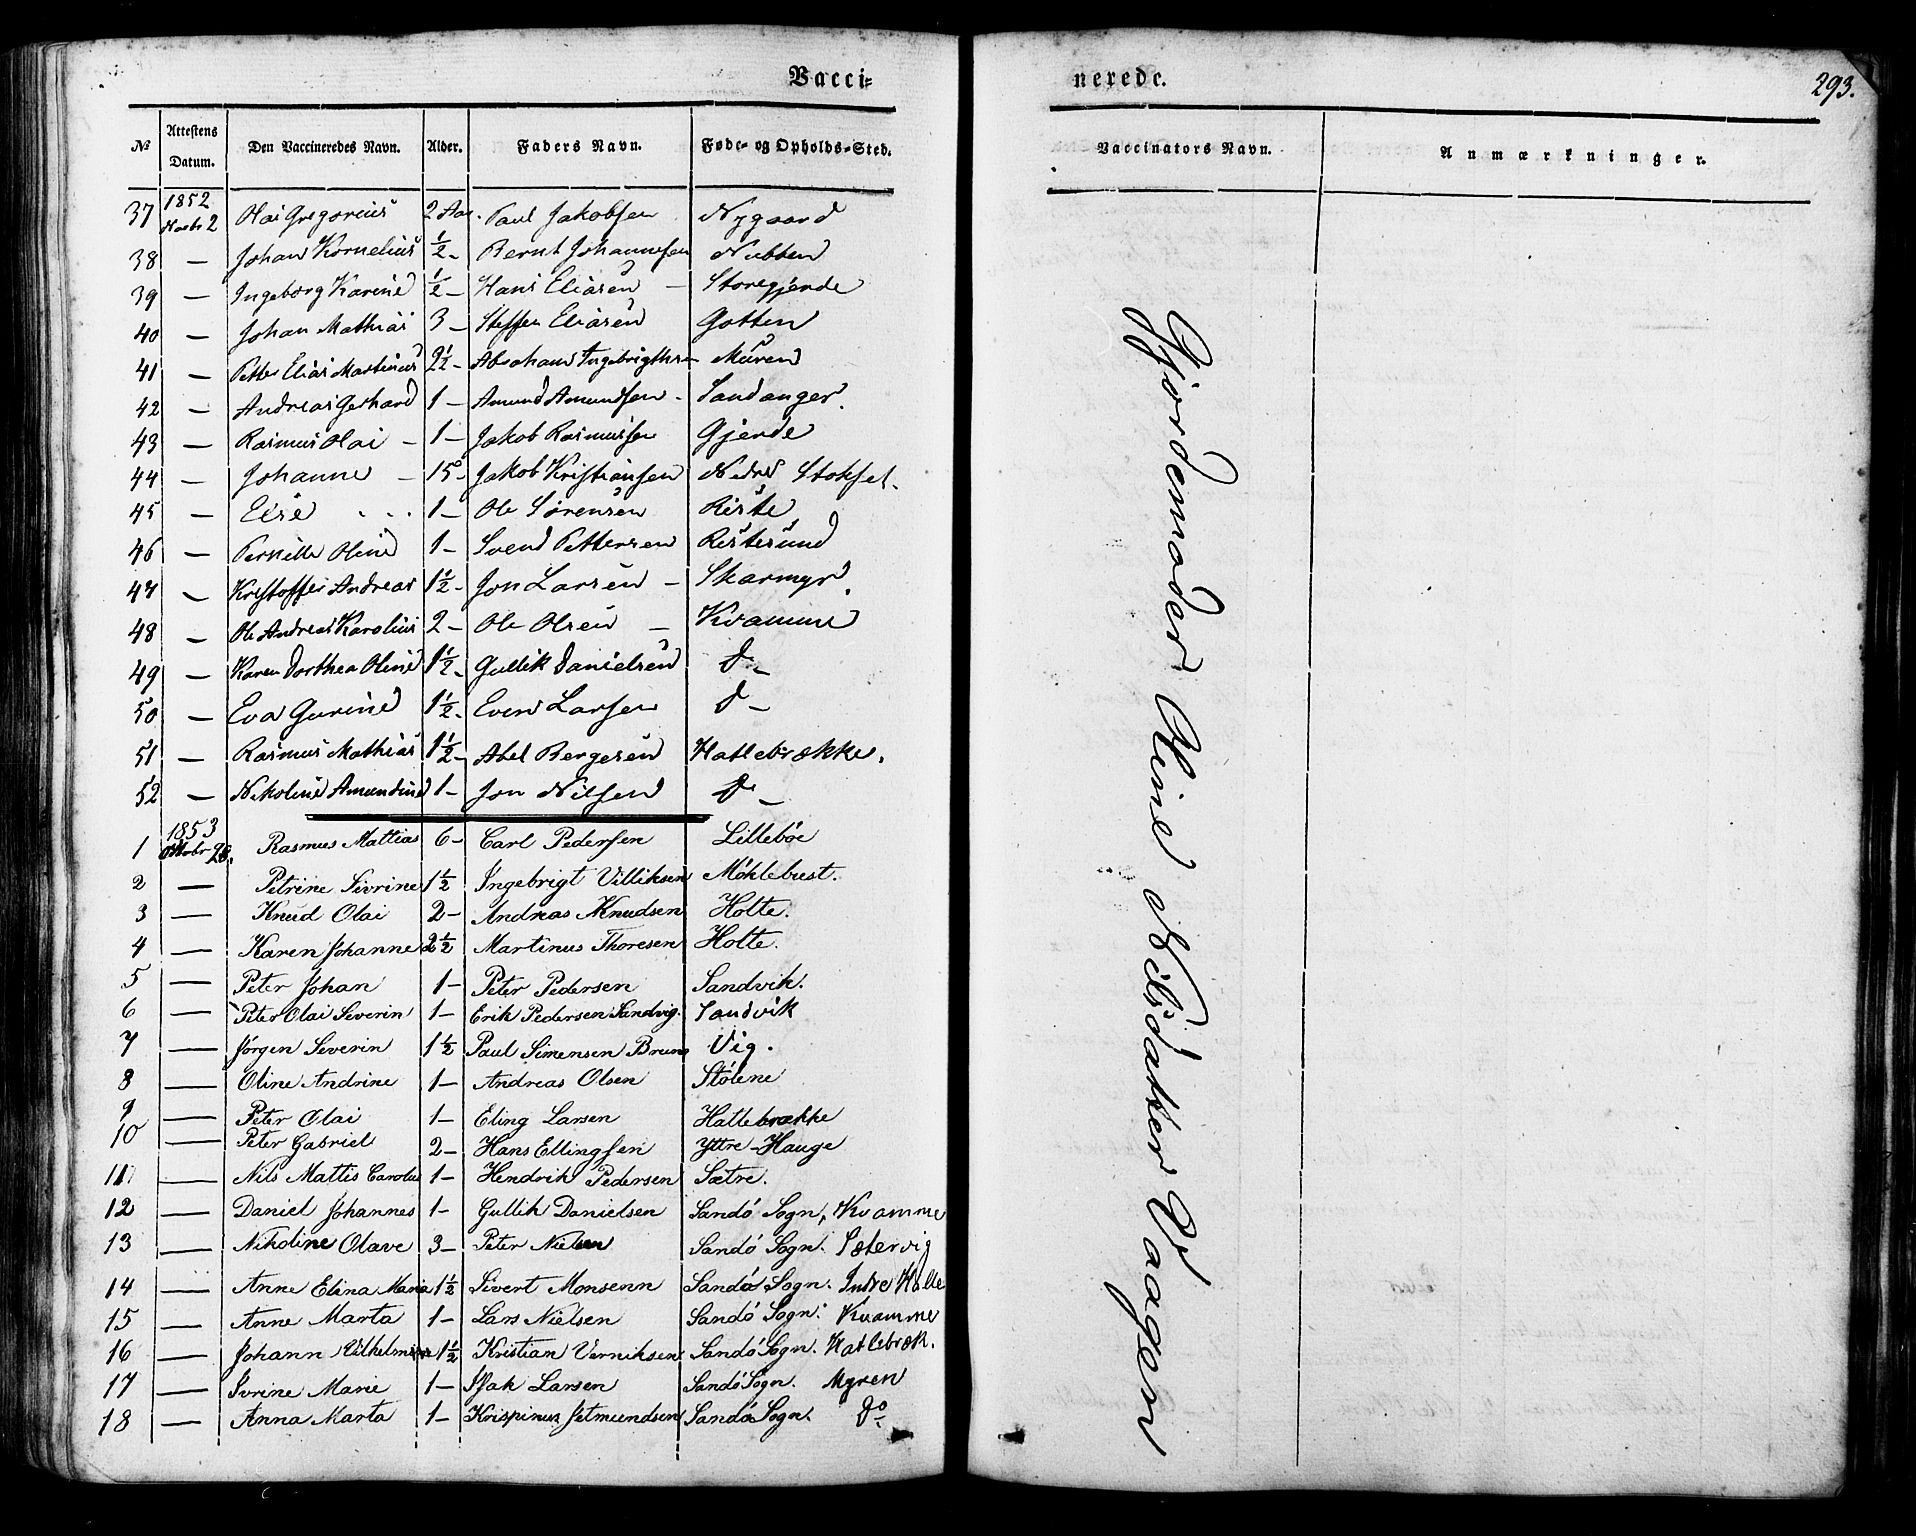 Vacci-
№ Attestens Datum. Den Vaccineredes Navn. Alder. Faders Navn. Føde- og Opholds-Sted.
37 1852 2 Olai Gregorius 2 Aar. Paul Jakobsen Nygaard
38 — Johan Kornelius ½ - Bernt Johannesen Nubben
39 — Ingeborg Karine ½ — Hans Eliasen — Storegjerde
40 — Johan Mathias 3 — Steffen Eliasen Gotten
41 — Petter Elias Martinus 2½ - Abraham Ingebrigtsen Muren
42 — Andreas Gerhard 1 — Amund Amundsen - Sandanger.
43 — Rasmus Olai — 1 — Jakob Rasmussen Gjerde
44 — Johanne — 15 - Jakob Kristiansen Nedre Stoksel.
45 — Elise . . . 1 — Ole Sørensen Riste
46 — Pernille Oline 1 — Svend Pettersen Ristesund
47 — Kristoffer Andreas 1½ - Jon Larsen — Skarmyr.
48 — Ole Andreas Karolius 2 — Ole Olsen — Kvamme
49 — Karen Dorthea Oline 1½ - Gullik Danielsen D -
50 — Eva Gurine 1½ - Even Larsen D —
51 — Rasmus Mathias 1½ - Abel Bergesen Hatlebrække.
52 — Nikoline Amundine 1 - Jon Nilsen D —
1 1853 Oktobr 26. Rasmus Mattias 6 - Carl Pedersen Lillebøe
2 — Petrine Sivrine 1½ Ingebrigt Villiksen Møklebust.
3 — Knud Olai 2 - Andreas Knudsen Holte.
4 — Karen Johanne 2½ Martinus Thoresen Holte.
5 — Peter Johan 1 - Peter Pedersen Sandvik.
6 — Peter Olai Severin 1 - Erik Pedersen Sandvig. Sandvik
7 — Jørgen Severin 1½ Paul Simensen Bruns Vig.
8 — Oline Andrine 1 - Andreas Olsen Stølene
9 — Peter Olai 1 - Eling Larsen Hatlebrække
10 — Peter Gabriel 2 - Hans Ellingsen Yttre-Hauge
11 — Nils Mattis Carolus 1 - Hendrik Pedersen Sætre.
12 — Daniel Johannes 1 - Gullik Danielsen Sandø Sogn, Kvamme
13 — Nikoline Olave 3 - Peter Nielsen Sandø Sogn. Sætervig
14 — Anne Elina Maria 1½ Sivert Monsenn Sandø Sogn. Indre Halle
15 — Anne Marta 1 - Lars Nielsen Sandø Sogn. Kvamme
16 — Johann Vilhelmine 1½ Kristian Verniksen Sandø Sogn. Hatlebræk.
17 — Ivrine Marie 1 - Isak Larsen Sandø Sogn. Myren
18 — Anna Marta 1 - Krispinus Setmundsen Sandø Sogn. Do
nerede.
293.
Vaccinators Navn. Anmærkninger.
Gjordemoder Oline Nilsdatter Vaagen